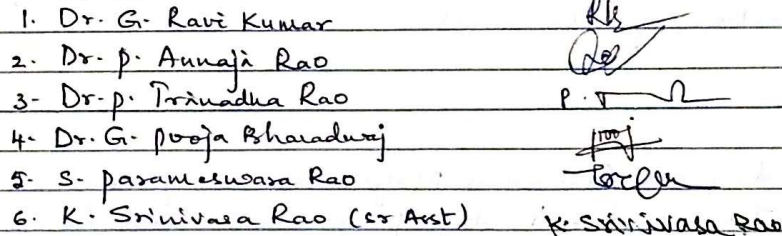 1. Dr. G. Ravi Kumar
2. Dr. p. Annaji Rao
3- Dr. p. Trinadha Rao P.
4- Dr. G. pooja Bharadwaj pooj
5- S. parameswara Rao
6. K. Srinivasa Rao (sr Asst) K. Srinivasa Rao